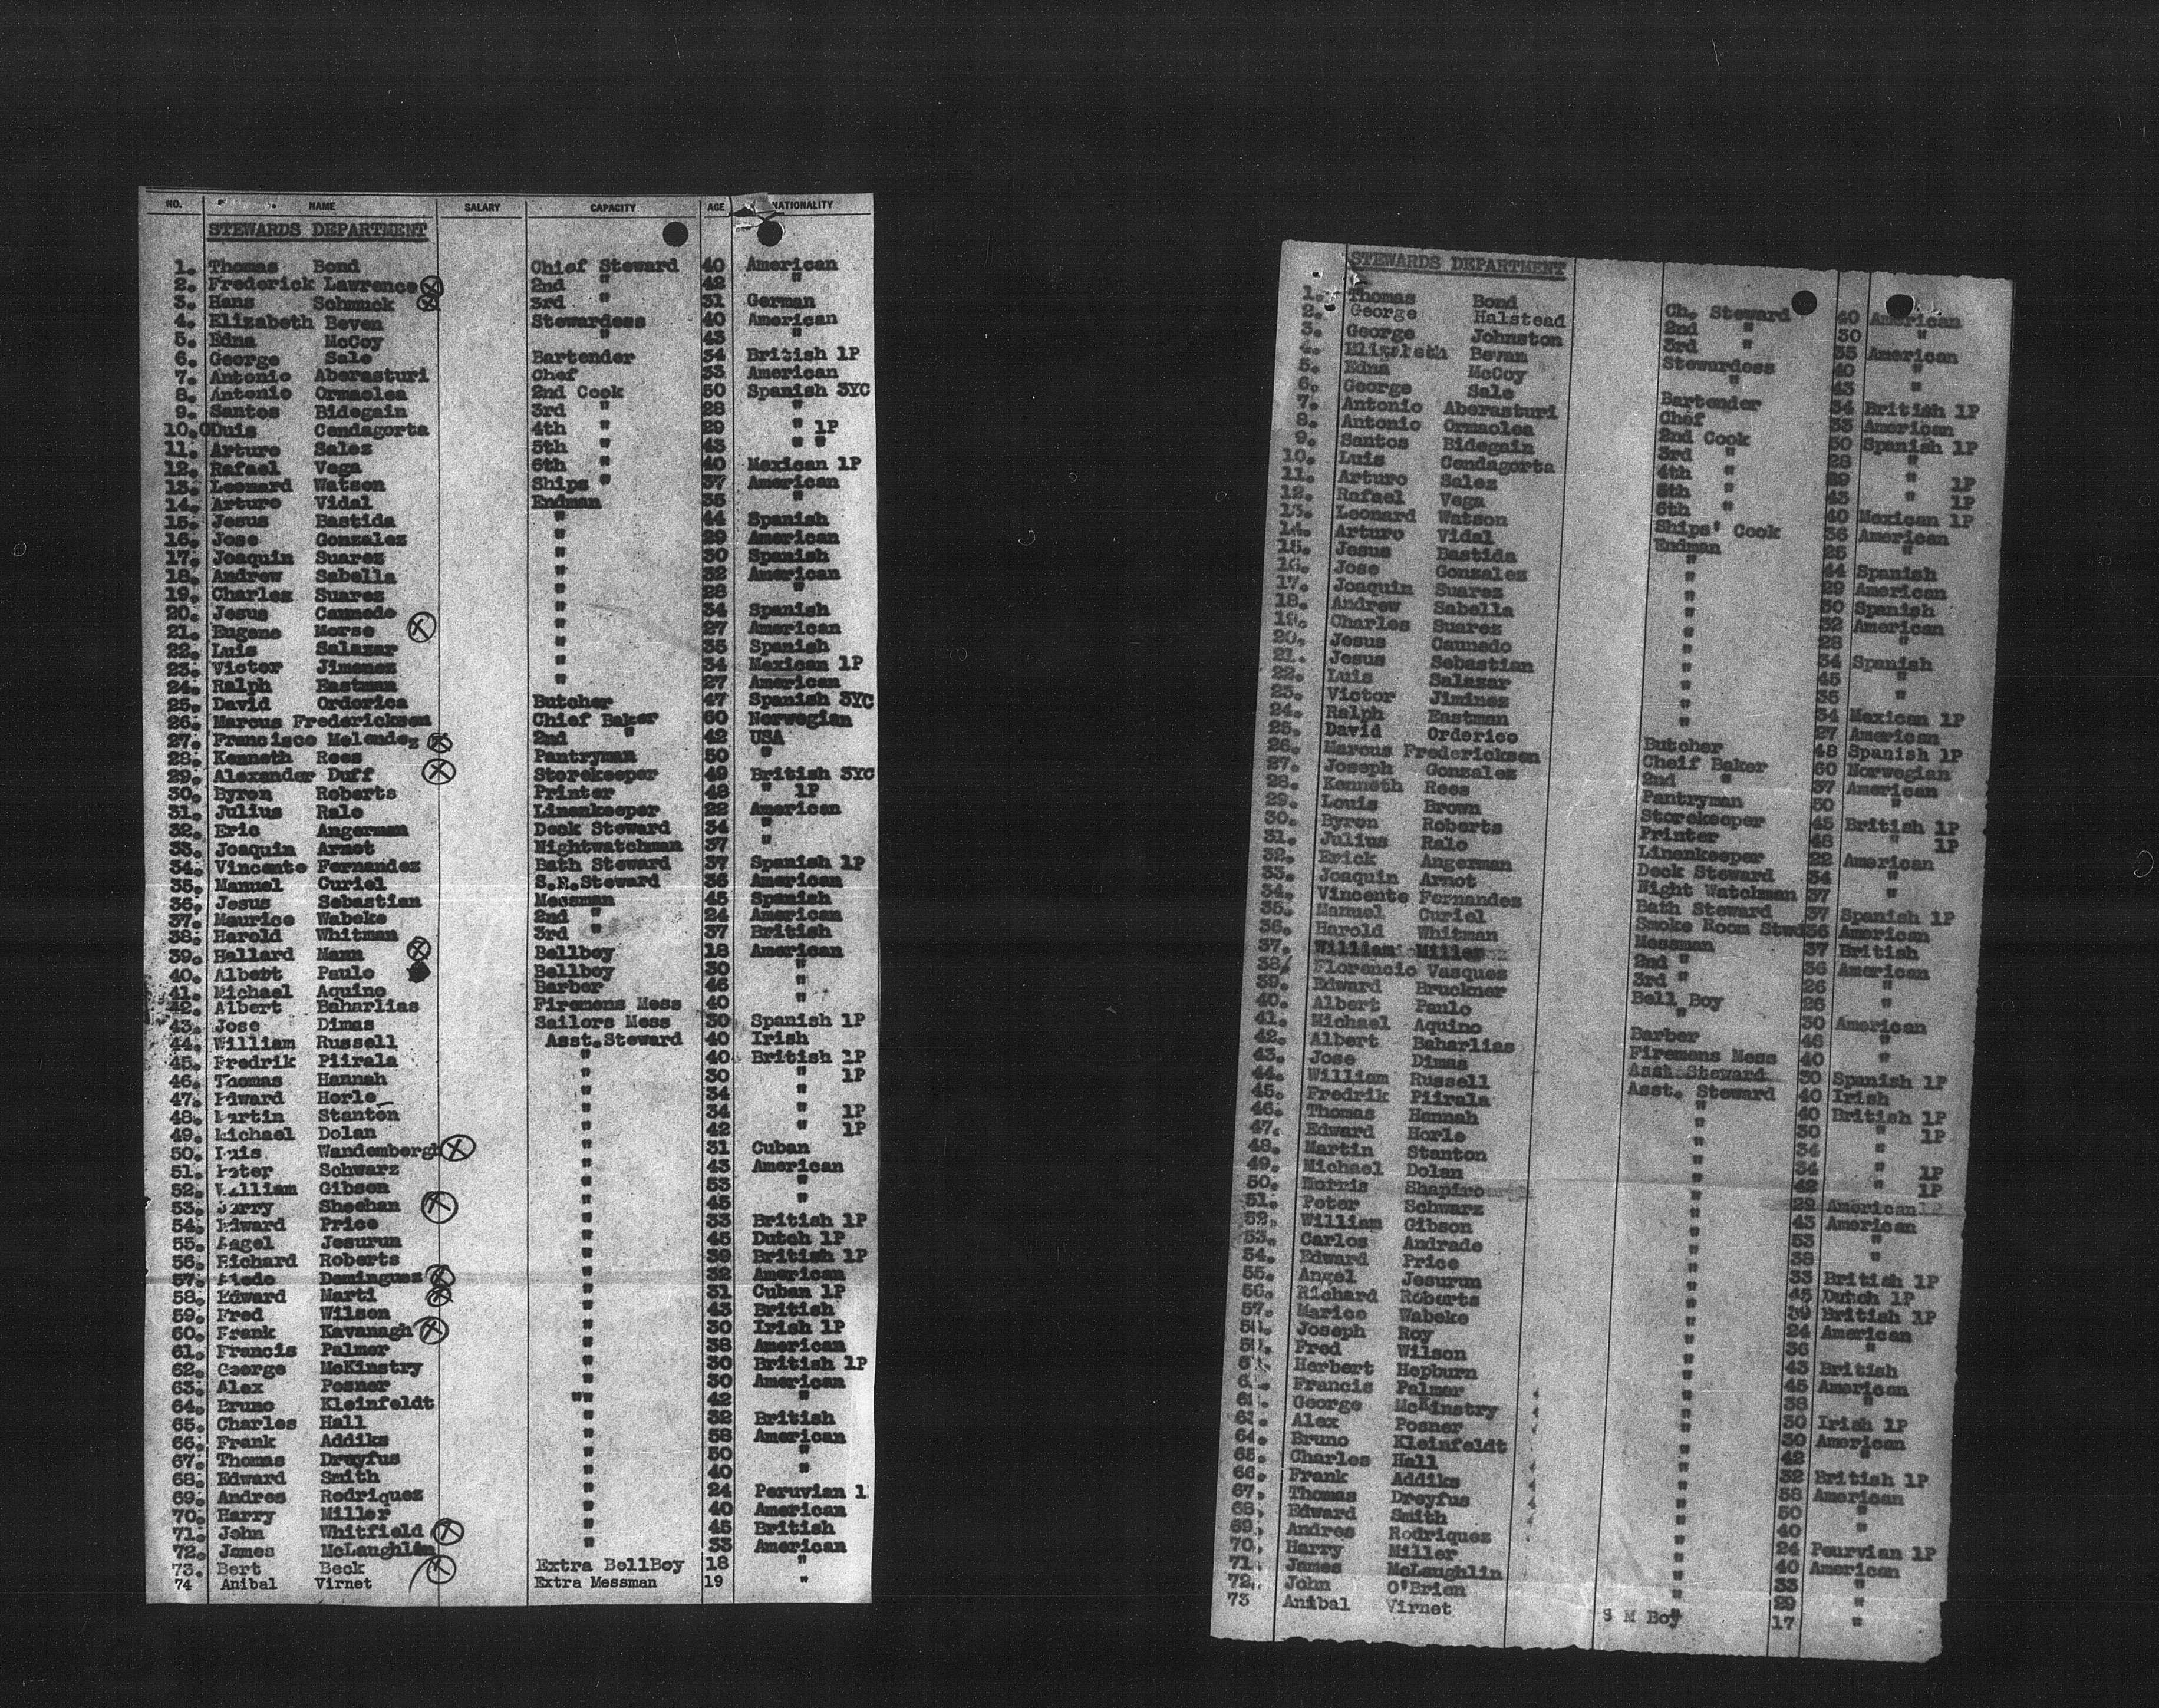 NO. NAME SALARY CAPACITY AGE NATIONALITY
STEWARDS DEPARTMENT
1. Thomas Bond Chief Steward 40 American
2. Frederick Lawrence 2nd " 42 "
3. Hans Schmuck 3rd " 31 German
4. Elizabeth Beven Stewardess 40 American
5. Edna McCoy " 43 "
6. George Sale Bartender 34 British 1P
7. Antonio Aberasturi Chef 33 American
8. Antonio Ormaelea 2nd Cook 50 Spanish 3YC
9. Santos Bidegain 3rd " 28 "
10. Luis Cendagorta 4th " 29 " 1P
11. Arturo Salez 5th " 43 " "
12. Rafael Vega 6th " 40 Mexican 1P
13. Leonard Watson Ships " 37 American
14. Arturo Vidal Endman 35 "
15. Jesus Bastida " 44 Spanish
16. Jose Gonzalez " 29 American
17. Joaquin Suarez " 30 Spanish
18. Andrew Sabella " 32 American
19. Charles Suarez " 28 "
20. Jesus Caunedo " 34 Spanish
21. Eugene Morse " 27 American
22. Luis Salazar " 35 Spanish
23. Victor Jimenez " 34 Mexican 1P
24. Ralph Eastman " 27 American
25. David Orderica Butcher 47 Spanish 3YC
26. Marcus Fredericksen Chief Baker 60 Norwegian
27. Francisco Melendez 2nd " 42 USA
28. Kenneth Rees Pantryman 50 "
29. Alexander Duff Storekeeper 49 British 3YC
30. Byron Roberts Printer 48 " 1P
31. Julius Ralo Linenkeeper 22 American
32. Eric Angerman Deck Steward 34 "
33. Joaquin Arnot Nightwatchman 37 "
34. Vincente Fernandez Bath Steward 37 Spanish 1P
35. Manuel Curiel S.R.Steward 36 American
36. Jesus Sebastian Messman 45 Spanish
37. Maurice Wabeke 2nd " 24 American
38. Harold Whitman 3rd " 37 British
39. Hallard Mann Bellboy 18 American
40. Albert Paulo Bellboy 30 "
41. Michael Aquino Barber 46 "
42. Albert Baharlias Firemens Mess 40 "
43. Jose Dimas Sailors Mess 30 Spanish 1P
44. William Russell Asst.Steward 40 Irish
45. Fredrik Piirala " 40 British 1P
46. Thomas Hannah " 30 " 1P
47. Edward Horle " 34 "
48. Martin Stanton " 34 " 1P
49. Michael Dolan " 42 " 1P
50. Luis Wandembergh " 31 Cuban
51. Peter Schwarz " 43 American
52. William Gibson " 53 "
53. Jerry Sheehan " 45 "
54. Edward Price " 33 British 1P
55. Angel Jesurun " 45 Dutch 1P
56. Richard Roberts " 39 British 1P
57. Dominguez " 32 American
58. Edward Marti " 31 Cuban 1P
59. Fred Wilson " 43 British
60. Frank Kavanagh " 30 Irish 1P
61. Francis Palmer " 38 American
62. George McKinstry " 30 British 1P
63. Alex Posner " 30 American
64. Bruno Kleinfeldt "" 42 "
65. Charles Hall " 32 British
66. Frank Addiks " 58 American
67. Thomas Dreyfus " 50 "
68. Edward Smith " 40 "
69. Andres Rodriquez " 24 Peruvian 1
70. Harry Miller " 40 American
71. John Whitfield " 45 British
72. James McLaughlin " 33 American
73. Bert Beck Extra BellBoy 18 "
74 Anibal Virnet Extra Messman 19 "
STEWARDS DEPARTMENT
1. Thomas Bond Ch. Steward 40 American
2. George Halstead 2nd " 30 "
3. George Johnston 3rd " 35 American
4. Elizabeth Bevan Stewardess 40 "
5. Edna McCoy " 43 "
6. George Sale Bartender 34 British 1P
7. Antonio Aberasturi Chef 33 American
8. Antonio Ormaolea 2nd Cook 50 Spanish 1P
9. Santos Bidegain 3rd " 28 "
10. Luis Cendagorta 4th " 29 " 1P
11. Arturo Salez 5th " 43 " 1P
12. Rafael Vega 6th " 40 Mexican 1P
13. Leonard Watson Ships' Cook 36 American
14. Arturo Vidal Endman 25 "
15. Jesus Bastida " 44 Spanish
16. Jose Gonzalez " 29 American
17. Joaquin Suarez " 30 Spanish
18. Andrew Sabella " 32 American
19. Charles Suarez " 28 "
20. Jesus Caunedo " 34 Spanish
21. Jesus Sebastian " 45 "
22. Luis Salazar " 35 "
23. Victor Jiminez " 34 Mexican 1P
24. Ralph Eastman " 27 American
25. David Orderico Butcher 48 Spanish 1P
26. Marcus Fredericksen Cheif Baker 60 Norwegian
27. Joseph Gonzalez 2nd " 37 American
28. Kenneth Rees Pantryman 50 "
29. Louis Brown Storekeeper 45 British 1P
30. Byron Roberts Printer 48 " 1P
31. Julius Ralo Linenkeeper 22 American
32. Erick Angerman Deck Steward 34 "
33. Joaquin Arnot Night Watchman 37 "
34. Vincente Fernandez Bath Steward 37 Spanish 1P
35. Manuel Curiel Smoke Room Stwd 36 American
36. Harold Whitman Messman 37 British
37. William Miller 2nd " 36 American
38. Florencio Vasquez 3rd " 26 "
39. Edward Bruckner Bell Boy 26 "
40. Albert Paulo " 30 American
41. Michael Aquino Barber 46 "
42. Albert Baharlias Firemens Mess 40 "
43. Jose Dimas Asst.Steward 30 Spanish 1P
44. William Russell Asst. Steward 40 Irish
45. Fredrik Piirala " 40 British 1P
46. Thomas Hannah " 30 " 1P
47. Edward Horle " 34 "
48. Martin Stanton " 34 " 1P
49. Michael Dolan " 42 " 1P
50. Morris Shapiro " 29 American
51. Peter Schwarz " 43 American
52. William Gibson " 53 "
53. Carlos Andrade " 38 "
54. Edward Price " 33 British 1P
55. Angel Jesurun " 45 Dutch 1P
56. Richard Roberts " 39 British 1P
57. Marice Wabeke " 24 American
58. Joseph Roy " 36 "
59. Fred Wilson " 43 British
Herbert Hepburn " 45 American
Francis Palmer " 38 "
George McKinstry " 30 Irish 1P
63. Alex Posner " 30 American
64. Bruno Kleinfeldt " 42 "
65. Charles Hall " 32 British 1P
66. Frank Addiks " 58 American
67. Thomas Dreyfus " 50 "
68. Edward Smith " 40 "
69. Andres Rodriquez " 24 Peurvian 1P
70. Harry Miller " 40 American
71. James McLaughlin " 33 "
72. John O'Brien " 29 "
73 Anibal Virnet S M Boy 17 "